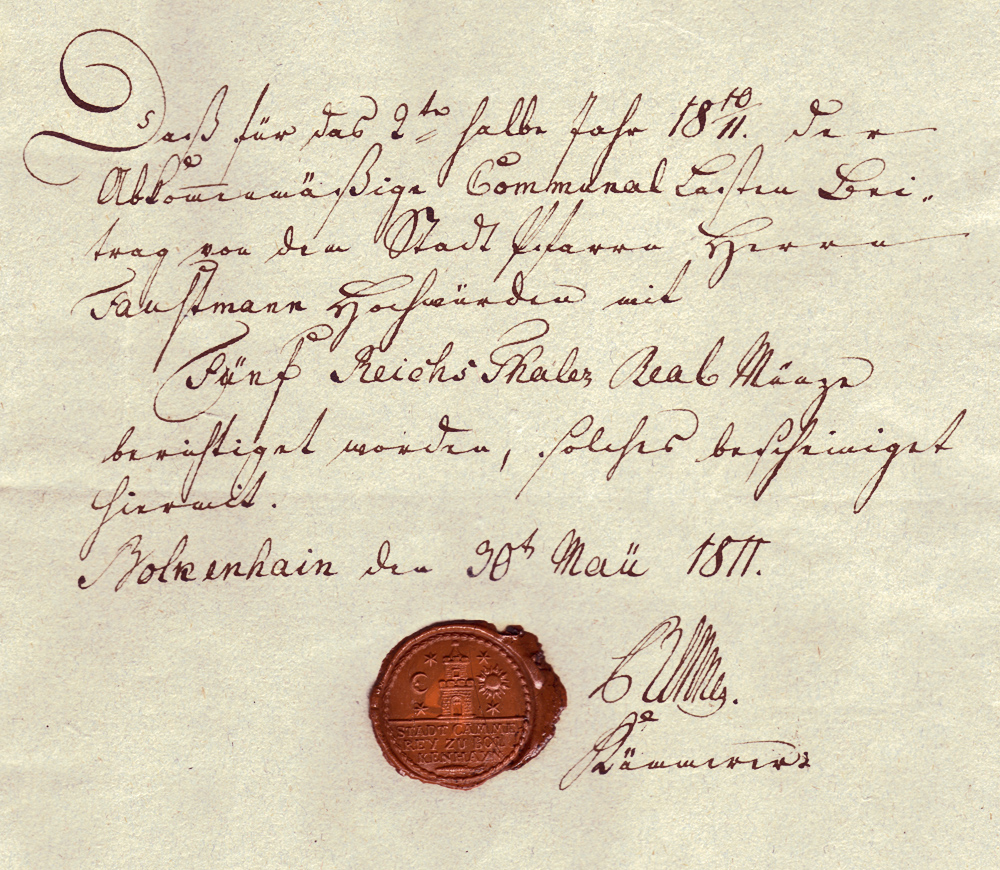 Daß für das 2te halbe Jahr 18 10/11. der
Abkommenmäßige Communal Lasten Bei„
trag von dem Stadt Pfarrn Herrn
Faustmann Hochwürden mit
Fünf Reichs Thaler Real Münze
berichtiget worden, solches bescheiniget
hiermit.
Bolkenhain den 30t Maÿ 1811.
Kämmerer
STADT CAMME
REY ZU BOL
KENHAYN